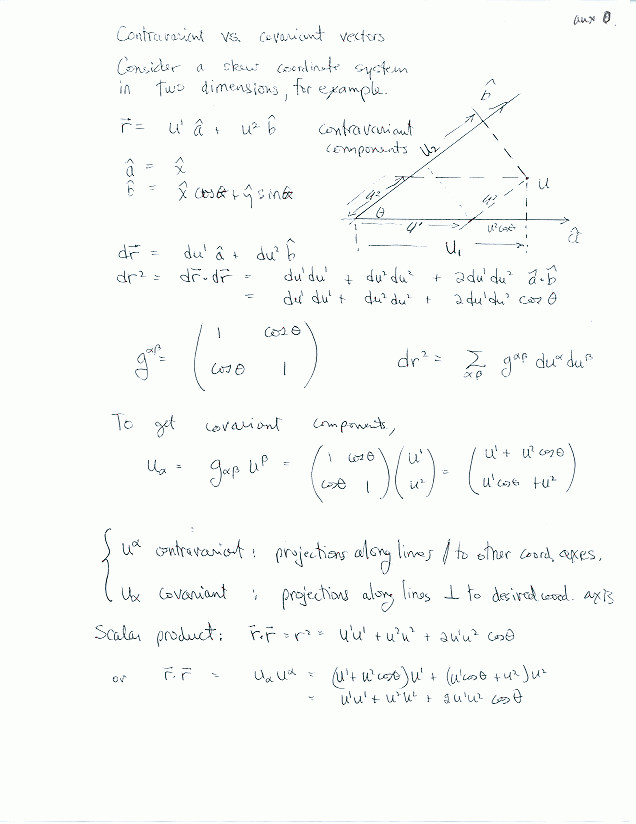 aux 0
Contravariant vs. covariant vectors
Consider a skew coordinate system
in two dimensions, for example.
b̂
r⃗ = u¹ â + u² b̂ contravariant
components
U₂
â = x̂
b̂ = x̂ cosθ + ŷ sinθ
u² θ u² u
u¹ u²cosθ â
U₁
dr⃗ = du¹ â + du² b̂
dr² = dr⃗·dr⃗ = du¹du¹ + du²du² + 2du¹du² â·b̂
= du¹ du¹ + du²du² + 2du¹du² cosθ
g^αβ = ( 1 cosθ
cosθ 1 )
dr² = Σ_αβ g^αβ du^α du^β
To get covariant components,
u_α = g_αβ u^β = ( 1 cosθ ; cosθ 1 ) ( u¹ ; u² ) = ( u¹ + u² cosθ ; u¹cosθ + u² )
{ u^α contravariant : projections along lines // to other coord. axes.
u_α covariant : projections along lines ⊥ to desired coord. axis
Scalar product: r⃗·r⃗ = r² = u¹u¹ + u²u² + 2u¹u² cosθ
or r⃗·r⃗ = u_α u^α = (u¹ + u²cosθ)u¹ + (u¹cosθ + u²)u²
= u¹u¹ + u²u² + 2u¹u² cosθ